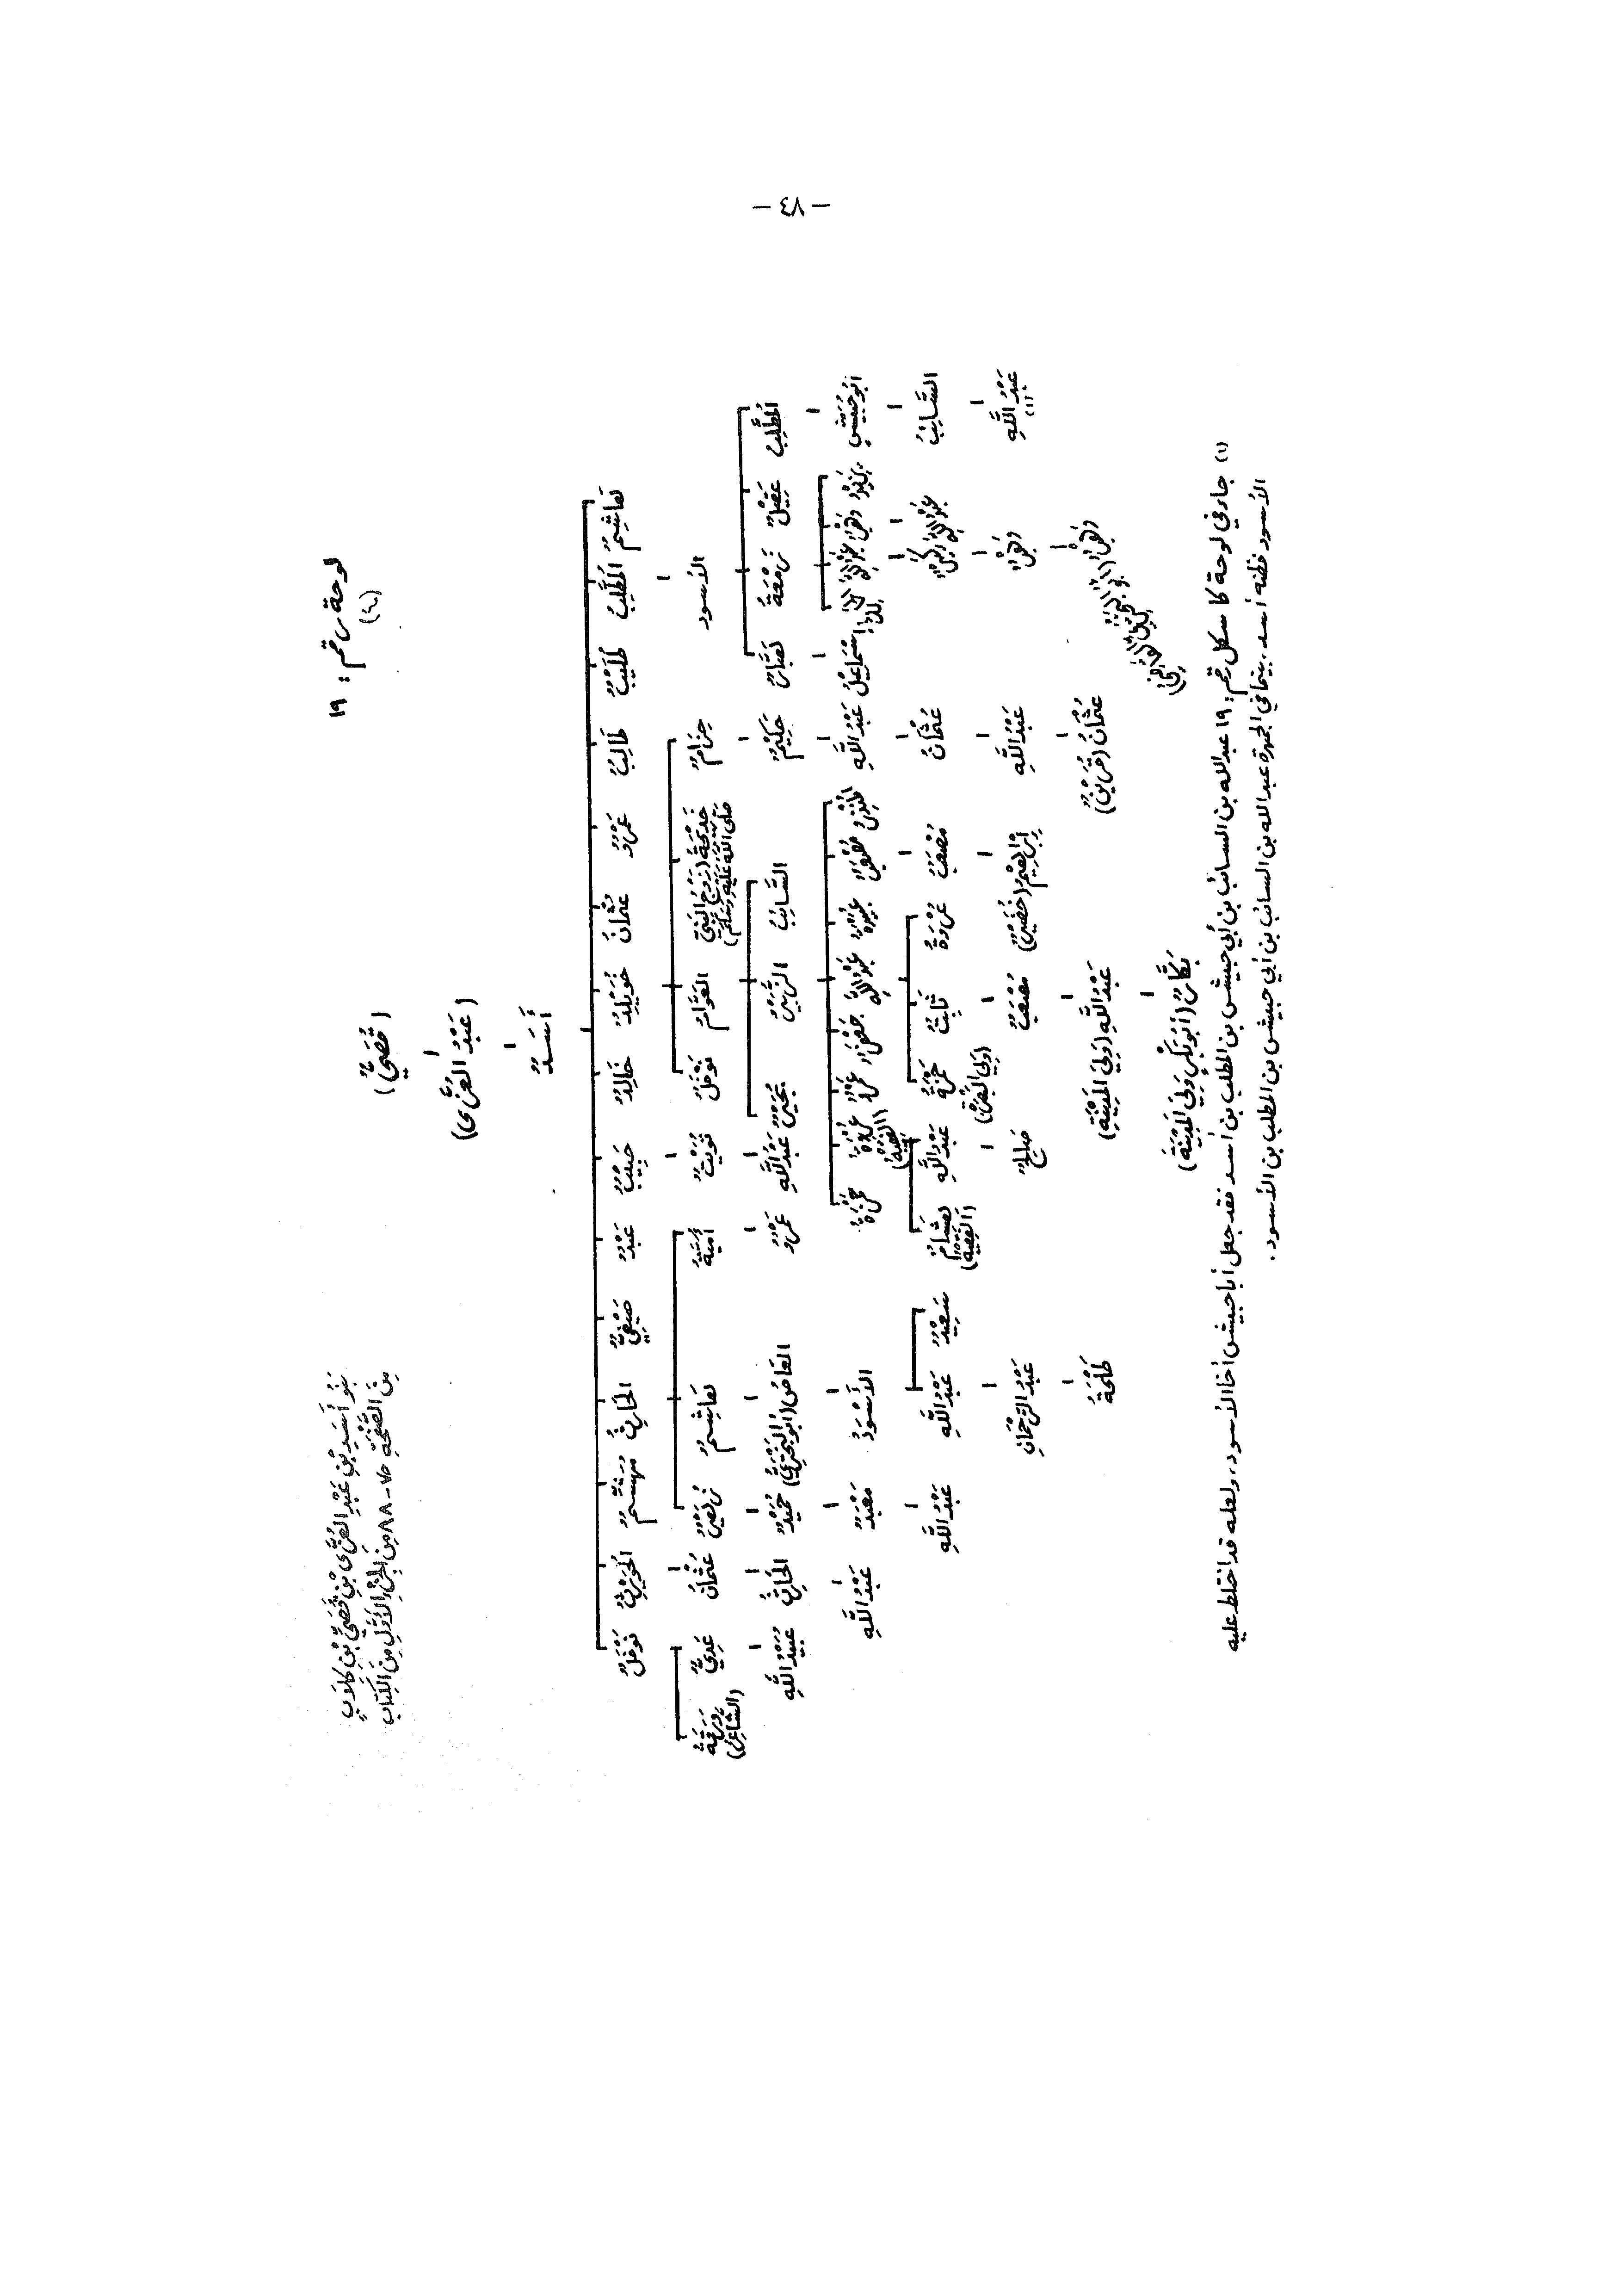 - ٧٤ -
لوحة رقم: ١٩
بَنُو أَسَدِ بْنِ عَبْدِ العُزَّى بْنِ قُصَيِّ بْنِ كِلَابٍ
مِنَ الصَّفْحَةِ ٧٥-٨٨ مِنَ الجُزْءِ الأَوَّلِ مِنَ الكِتَابِ
(قُصَيٌّ)
(عَبْدُ العُزَّى)
أَسَدٌ
هَاشِمٌ المُطَّلِبُ طُلَيْبٌ طَالِبٌ عَمْرٌو عُثْمَانُ خُوَيْلِدٌ خَالِدٌ حَبِيبٌ عَبْدٌ صَيْفِيٌّ الحَارِثُ مُهَشَّمٌ الحُوَيْرِثُ نَوْفَلٌ
الأسود حِزَامٌ خَدِيجَةُ (زَوْجُ النَّبِيِّ صَلَّى اللهُ عَلَيْهِ وَسَلَّمَ) العَوَّامُ نَوْفَلٌ تُوَيْتٌ أُمَيَّةُ هَاشِمٌ زُهَيْرٌ عُثْمَانُ عَدِيٌّ وَرَقَةُ (الشَّاعِرُ)
المُطَّلِبُ عَقِيلٌ زَمْعَةُ هَبَّارٌ حَكِيمٌ السَّائِبُ الزُّبَيْرُ بُجَيْرٌ عَبْدُ اللَّهِ عَمْرٌو العَاصُ (أبُو البَخْتَرِيِّ) حُمَيْدٌ الحَارِثُ عُبَيْدُ اللَّهِ
أبُو حُبَيْشٍ يَزِيدُ وَهْبٌ عَبْدُ اللَّهِ اسْمَاعِيلُ عَبْدُ اللَّهِ المُنْذِرُ مُصْعَبٌ عُبَيْدَةُ عَبْدُ اللَّهِ جَعْفَرٌ عَمْرٌو عُرْوَةُ (الفَقِيهُ) حَمْزَةُ الأَسْوَدُ مَعْبَدٌ عَبْدُ اللَّهِ
السَّائِبُ عَبْدُ اللَّهِ كَثِيرٌ عُثْمَانُ مُصْعَبٌ عُرْوَةُ ثَابِتٌ حَمْزَةُ (وَلِيَ البَصْرَةَ) عَبْدُ اللَّهِ هِشَامٌ (الفَقِيهُ) سَعِيدٌ عَبْدُ اللَّهِ عَبْدُ اللَّهِ
عَبْدُ اللَّهِ (١) وَهْبٌ عَبْدُ اللَّهِ إبْرَاهِيمُ (خُضَيْرٌ) مُصْعَبٌ صَالِحٌ عَبْدُ الرَّحْمَانِ
وَهْبٌ (أبُو البَخْتَرِيِّ القَاضِي) عُثْمَانُ (قُرَيْنٌ) عَبْدُ اللَّهِ (وَلِيَ المَدِينَةَ) طَلْحَةُ
بَكَّارٌ (أبُو بَكْرٍ وَلِيَ المَدِينَةَ)
(١) جاء في لوحة كاسكل رقم: ١٩ عبدالله بن السائب بن أبي حبيش بن المطلب بن أسد فقد جعل أبا حبيش أخا الأسود، ولعله قد اختلط عليه
الأسود فظنه أسد، بينما في الجمهرة عبدالله بن السائب بن أبي حبيش بن المطلب بن الأسود.